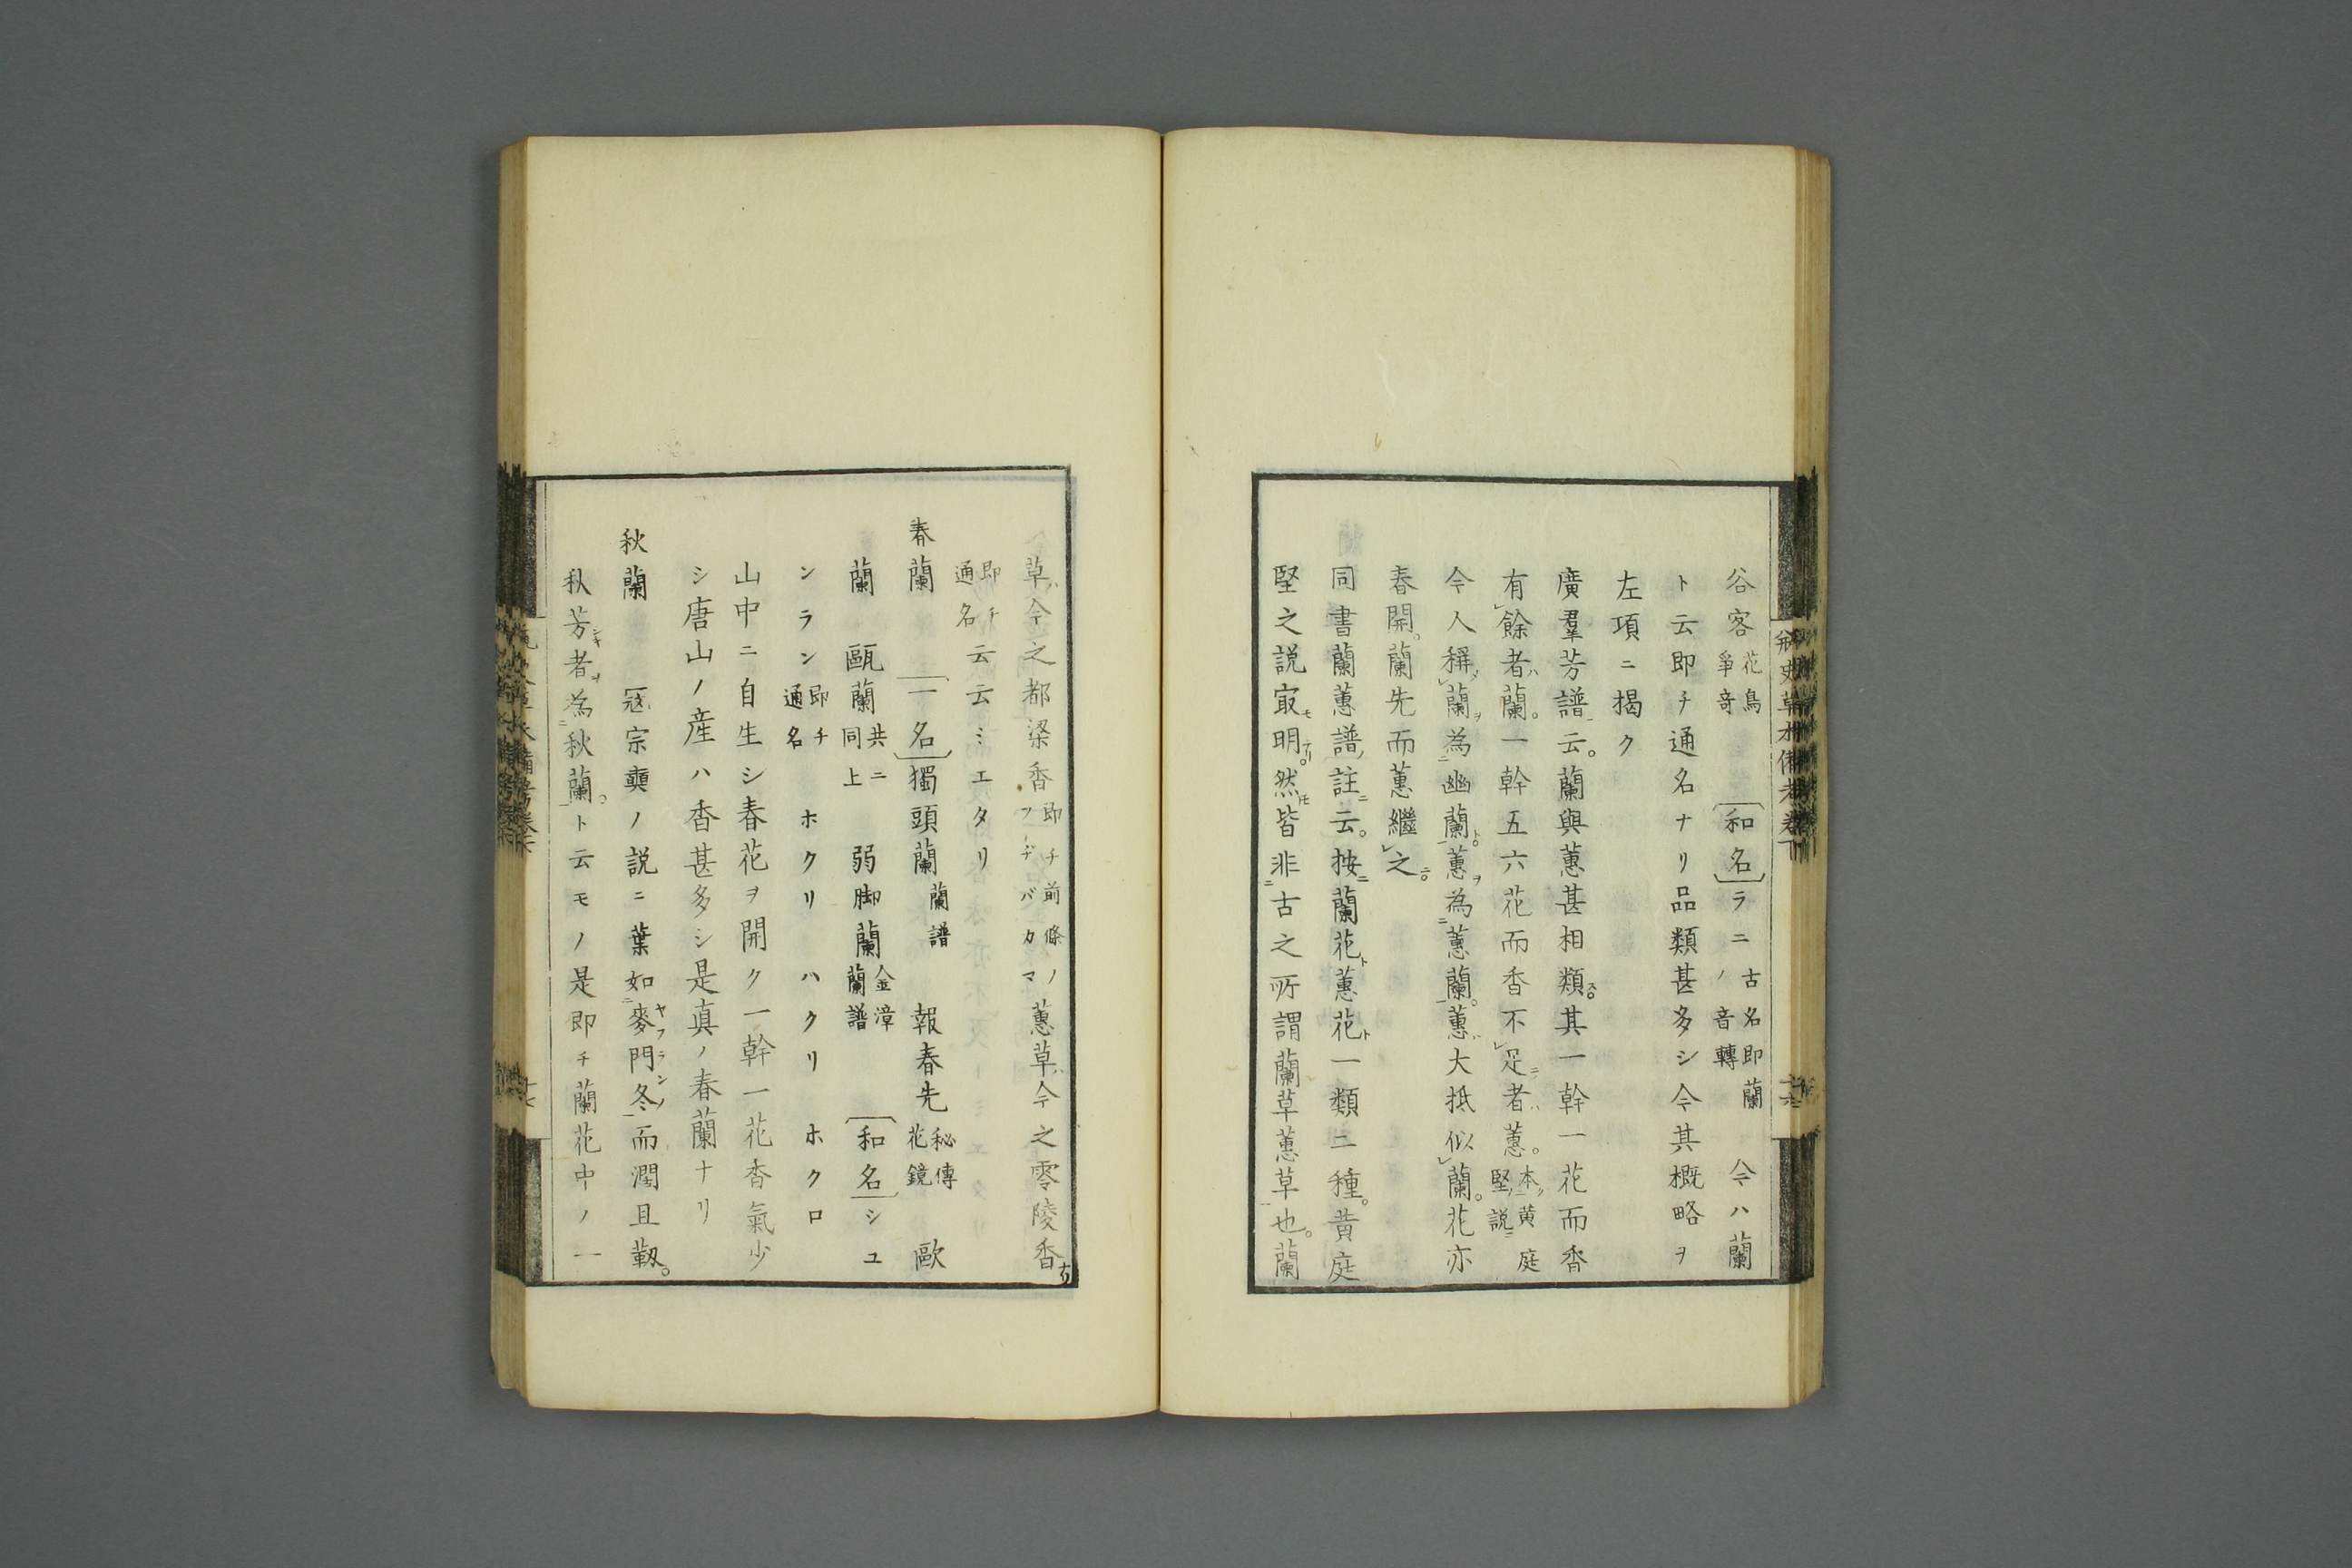 谷客 花鳥爭奇 〔和名〕ラニ 古名即蘭ノ音轉 今ハ蘭
ト云即チ通名ナリ品類甚多シ今其概略ヲ
左項ニ掲ク
廣羣芳譜云。蘭與蕙甚相類ス。其一幹一花而香
有餘者ハ蘭。一幹五六花而香不足者ハ蕙。本黄庭堅説
今人稱蘭ヲ為幽蘭ト。蕙ヲ為蕙蘭。蕙大抵似蘭。花亦
春開。蘭先而蕙繼之。
同書蘭蕙譜註云。按蘭花ト蕙花ト一類二種。黄庭
堅之説㝡モ明ナリ。然ドモ皆非古之所謂蘭草蕙草也。蘭
草ハ今之都梁香 即チ前條ノフヂバカマ 蕙草ハ今之零陵香
即チ通名 云云ミエタリ
春蘭 〔一名〕獨頭蘭 蘭譜 報春先 秘傳花鏡 歐
蘭 甌蘭 共ニ同上 弱脚蘭 金漳蘭譜 〔和名〕シユ
ンラン 即チ通名 ホクリ ハクリ ホクロ
山中ニ自生シ春花ヲ開ク一幹一花香氣少
シ唐山ノ産ハ香甚多シ是真ノ春蘭ナリ
秋蘭 冦宗奭ノ説ニ葉如麥門冬ヤブランノ而潤且靱。
秋芳者ヲ為秋蘭ト云モノ是即チ蘭花中ノ一